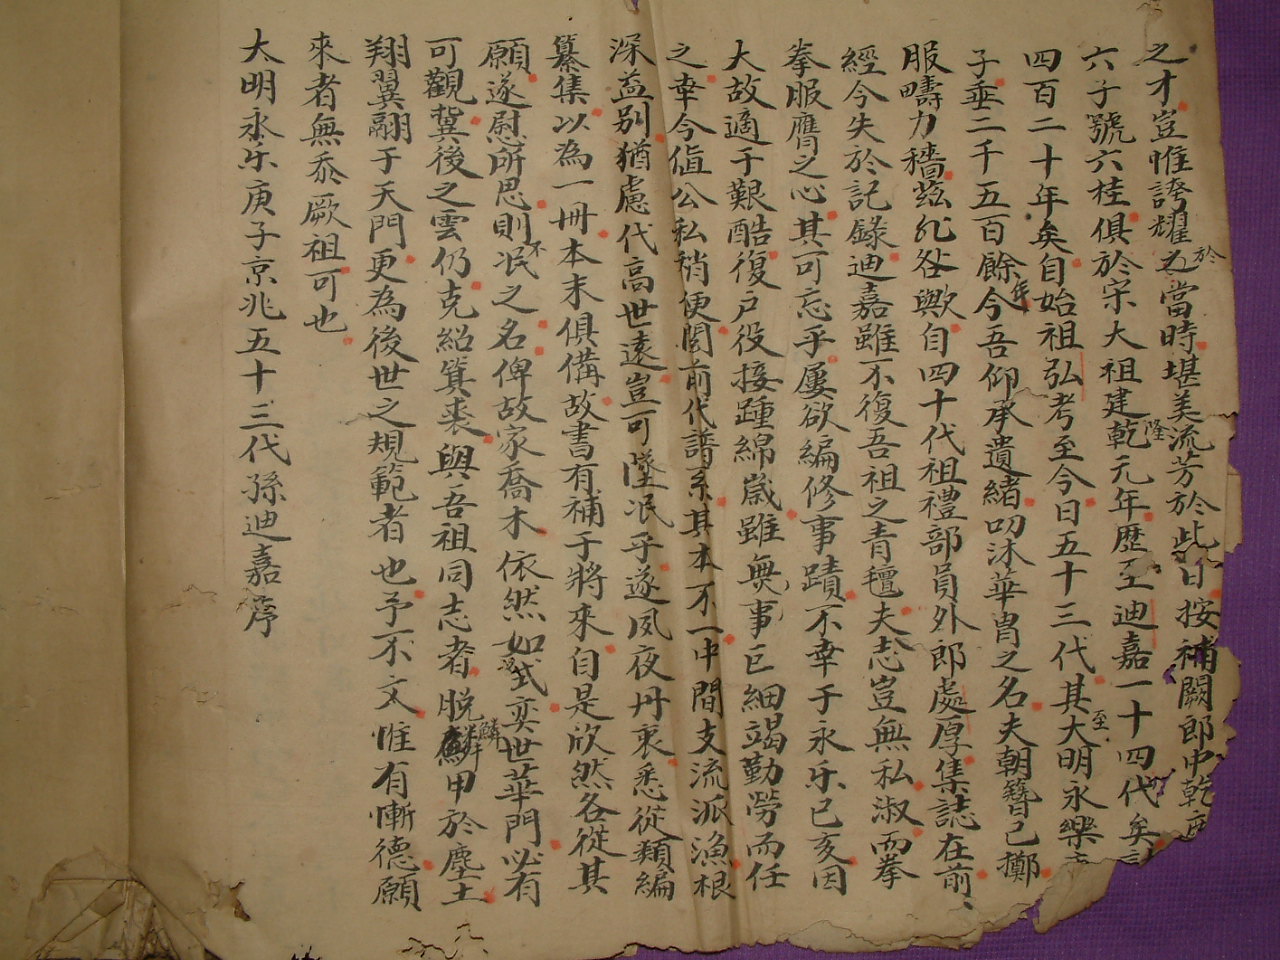 之才豈惟誇耀於當時堪美流芳於此日按補闕郎中乾
六子號六桂俱於宋大祖建隆乾元年歷至迪嘉一十四代矣
四百二十年矣自始祖弘考至今日五十三代其至大明永樂
子垂二千五百餘年今吾仰承遺緒叨沐華胄之名夫朝簪已擲
服疇力穡茲非咎歟自四十代祖禮部員外郎處厚集誌在前
經今失於記錄迪嘉雖不復吾祖之青氊夫志豈無私淑而拳
拳服膺之心其可忘乎屢欲編修事蹟不幸于永乐己亥因
大故適于艱酷復戶役接踵綿歲雖無事巨細竭勤勞而任
之幸今值公私稍便閱前代譜系其本不一中間支流派漁根
深益別猶慮代高世遠豈可墜泯乎遂夙夜丹衷悉從類編
纂集以為一冊本末俱備故書有補于將來自是欣然各從其
願遂慰所思則不泯之名俾故家喬木依然如式奕世華門必有
可觀冀後之雲仍克紹箕裘與吾祖同志者脫鱗甲於塵土
翔翼翮于天門更為後世之規範者也予不文惟有慚德願
來者無忝厥祖可也
大明永乐庚子京兆五十三代孫迪嘉序